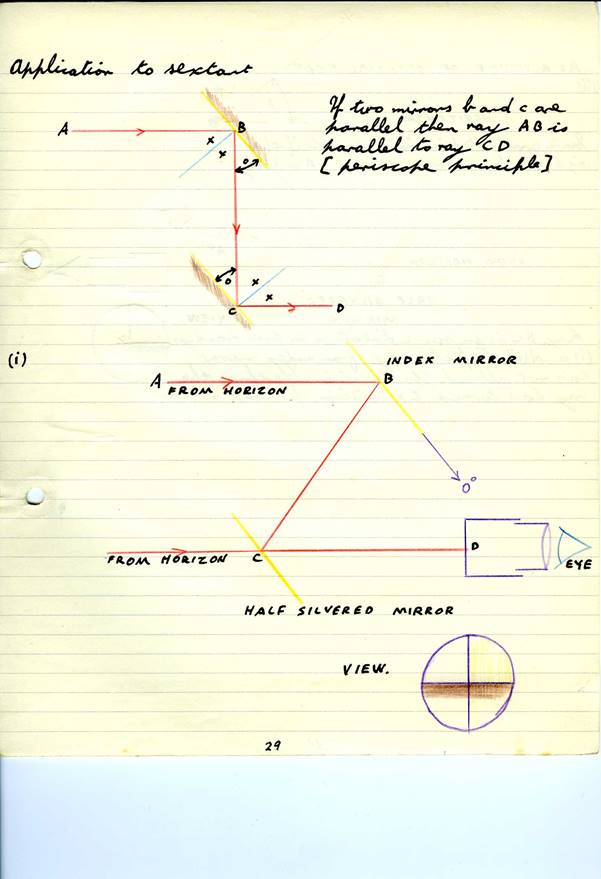 Application to sextant
If two mirrors b and c are
parallel then ray AB is
parallel to ray CD
[periscope principle]
A
B
x
x
θ
θ
x
x
C
D
(i)
INDEX MIRROR
A
B
FROM HORIZON
0°
FROM HORIZON
C
D
EYE
HALF SILVERED MIRROR
VIEW.
29